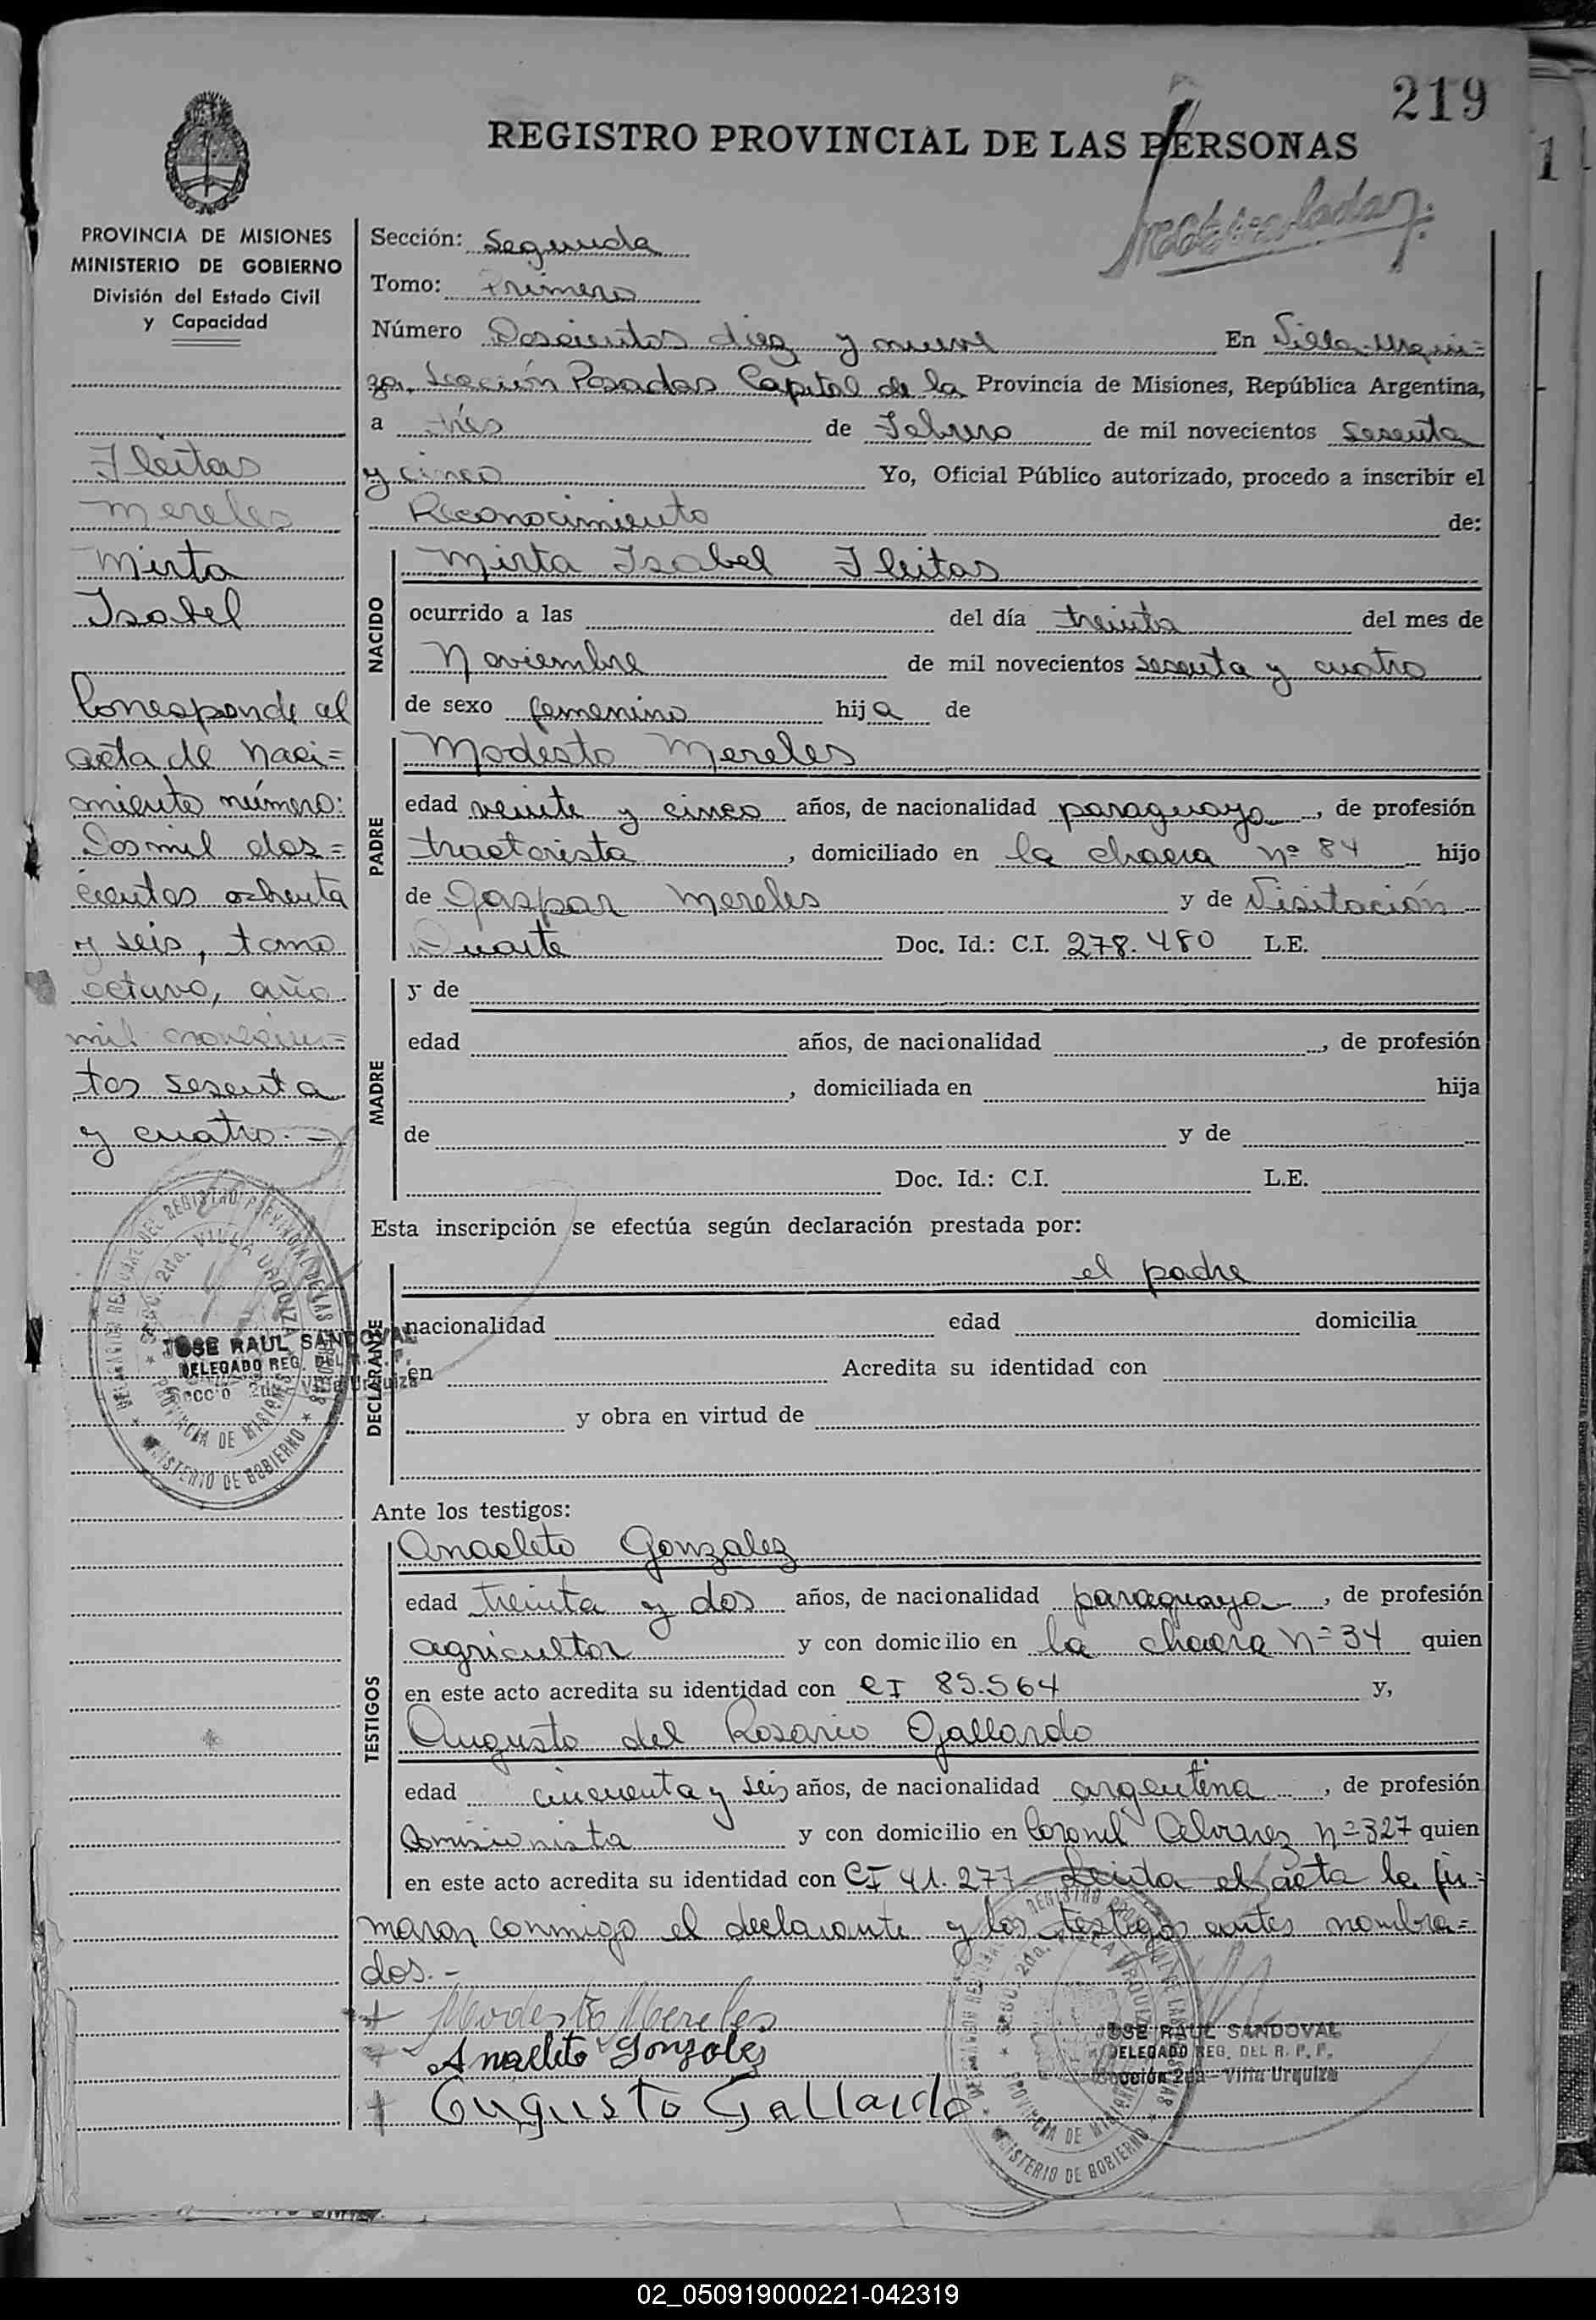 219
REGISTRO PROVINCIAL DE LAS PERSONAS
1
PROVINCIA DE MISIONES
MINISTERIO DE GOBIERNO
División del Estado Civil
y Capacidad
Fleitas
Mereles
Mirta
Isabel
Corresponde al
acta de Naci=
miento número:
Dos mil dos=
cientos ochenta
y seis, tomo
octavo, año
mil novecien=
tos sesenta
y cuatro.-
DELEGACION REGIONAL DEL REGISTRO PROVINCIAL DE LAS PERSONAS
SECC. 2da. VILLA URQUIZA
PROVINCIA DE MISIONES
MINISTERIO DE GOBIERNO
JOSE RAUL SANDOVAL
DELEGADO REG. DEL R. P. P.
Sección 2da - Villa Urquiza
Sección: Segunda
Tomo: Primero
Número Doscientos diez y nueve En Villa Urqui=
za, Sección Posadas Capital de la Provincia de Misiones, República Argentina,
a tres de Febrero de mil novecientos sesenta
y cinco Yo, Oficial Público autorizado, procedo a inscribir el
Reconocimiento de:
NACIDO
Mirta Isabel Fleitas
ocurrido a las del día treinta del mes de
Noviembre de mil novecientos sesenta y cuatro
de sexo femenino hija de
PADRE
Modesto Mereles
edad veinte y cinco años, de nacionalidad paraguaya, de profesión
tractorista, domiciliado en la chacra nº 84 hijo
de Gaspar Mereles y de Visitación
Duarte Doc. Id.: C.I. 278.480 L.E.
MADRE
y de
edad años, de nacionalidad , de profesión
, domiciliada en hija
de y de
Doc. Id.: C.I. L.E.
Esta inscripción se efectúa según declaración prestada por:
DECLARANTE
el padre
nacionalidad edad domicilia
en Acredita su identidad con
y obra en virtud de
Ante los testigos:
TESTIGOS
Anacleto Gonzalez
edad treinta y dos años, de nacionalidad paraguaya, de profesión
agricultor y con domicilio en la chacra nº 34 quien
en este acto acredita su identidad con CI 85.564 y,
Augusto del Rosario Gallardo
edad cincuenta y seis años, de nacionalidad argentina, de profesión
Comisionista y con domicilio en Coronel Alvarez nº 327 quien
en este acto acredita su identidad con CI 41.277 Leida el acta la fir=
maron conmigo el declarante y los testigos antes nombra=
dos.-
Modesto Mereles
Anacleto Gonzalez
Augusto Gallardo
DELEGACION REGIONAL DEL REGISTRO PROVINCIAL DE LAS PERSONAS
SECC. 2da. VILLA URQUIZA
PROVINCIA DE MISIONES
MINISTERIO DE GOBIERNO
JOSE RAUL SANDOVAL
DELEGADO REG. DEL R. P. P.
Sección 2da - Villa Urquiza
02_050919000221-042319